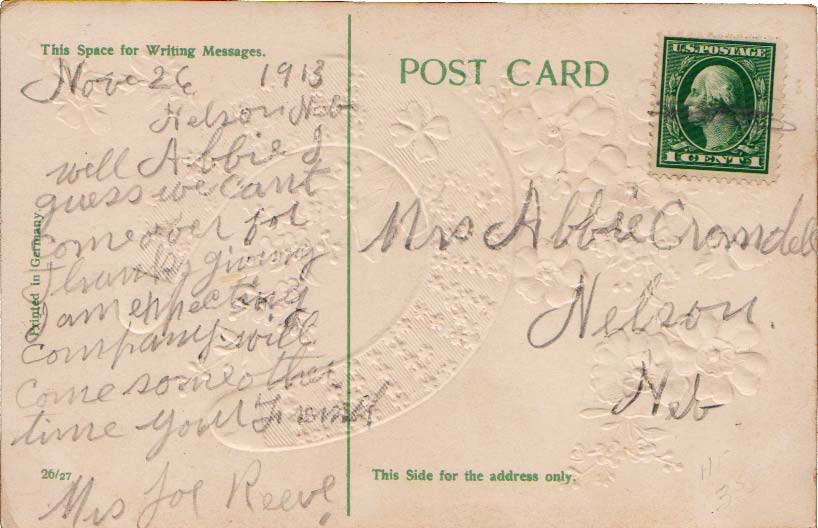 This Space for Writing Messages.
Nov 26 1913
Nelson Neb
well Abbie I
guess we cant
come over for
Thanks giving
I am expecting
company. will
come some other
time your Friend
Mrs Joe Reeve
26/27
Printed in Germany
POST CARD
U.S. POSTAGE
1 CENT 1
Mrs Abbie Crandell
Nelson.
Neb
This Side for the address only.